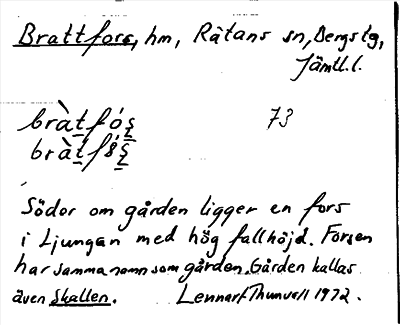 Brattfors, hm, Rätans sn, Bergs tg,
Jämtl.l.
bràt̲fó̲s̲ 73
bràt̲fs̲
Söder om gården ligger en fors
i Ljungan med hög fallhöjd. Forsen
har samma namn som gården. Gården kallas
även Skallen. Lennart Thunvall 1972.